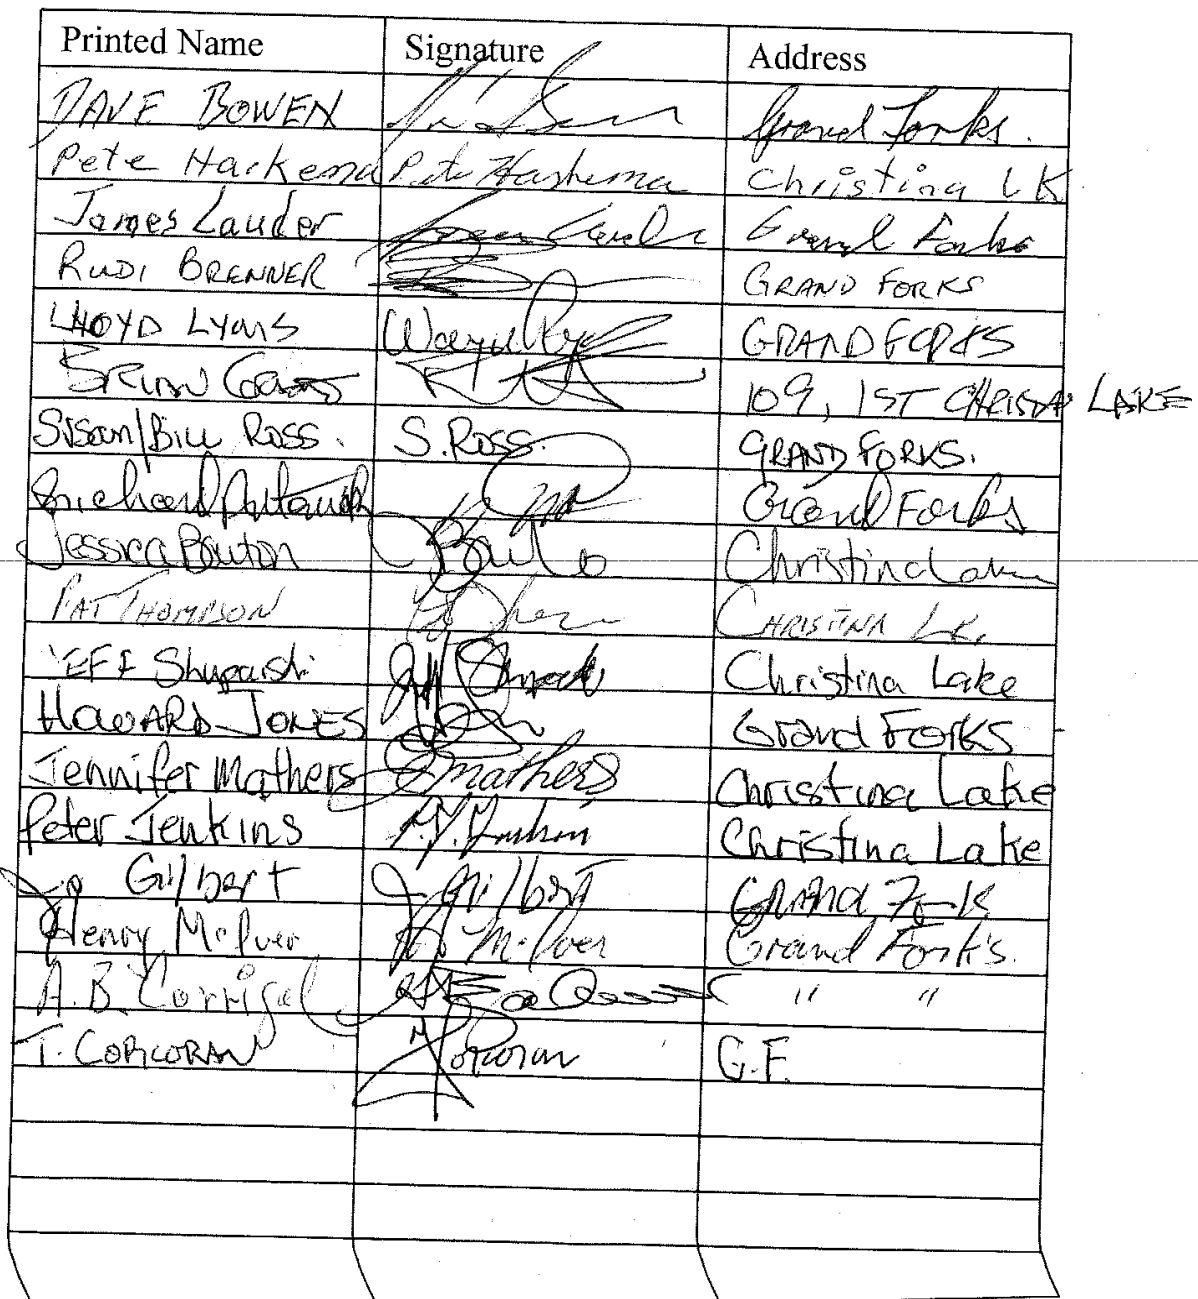 Printed Name Signature Address
DAVE BOWEN Grand Forks.
Pete Harkema Pete Harkema Christina LK
James Lauder Grand Forks
RUDI BRENNER GRAND FORKS
LLOYD LYONS GRAND FORKS
BRIAN 109, 1ST CHRISTA LAKE
Susan/Bill Ross. S. Ross. GRAND FORKS.
Richard Grand Forks
Jessica Bouton Christina Lake
PAT THOMPSON CHRISTINA LK.
JEFF Christina Lake
HOWARD JONES Grand Forks
Jennifer Mathers JMathers Christina Lake
Peter Jenkins P.J. Jenkins Christina Lake
Gilbert J Gilbert Grand Forks
Henry McIver H McIver Grand Forks.
A.B. Corrigal " "
T. CORCORAN T Corcoran G.F.